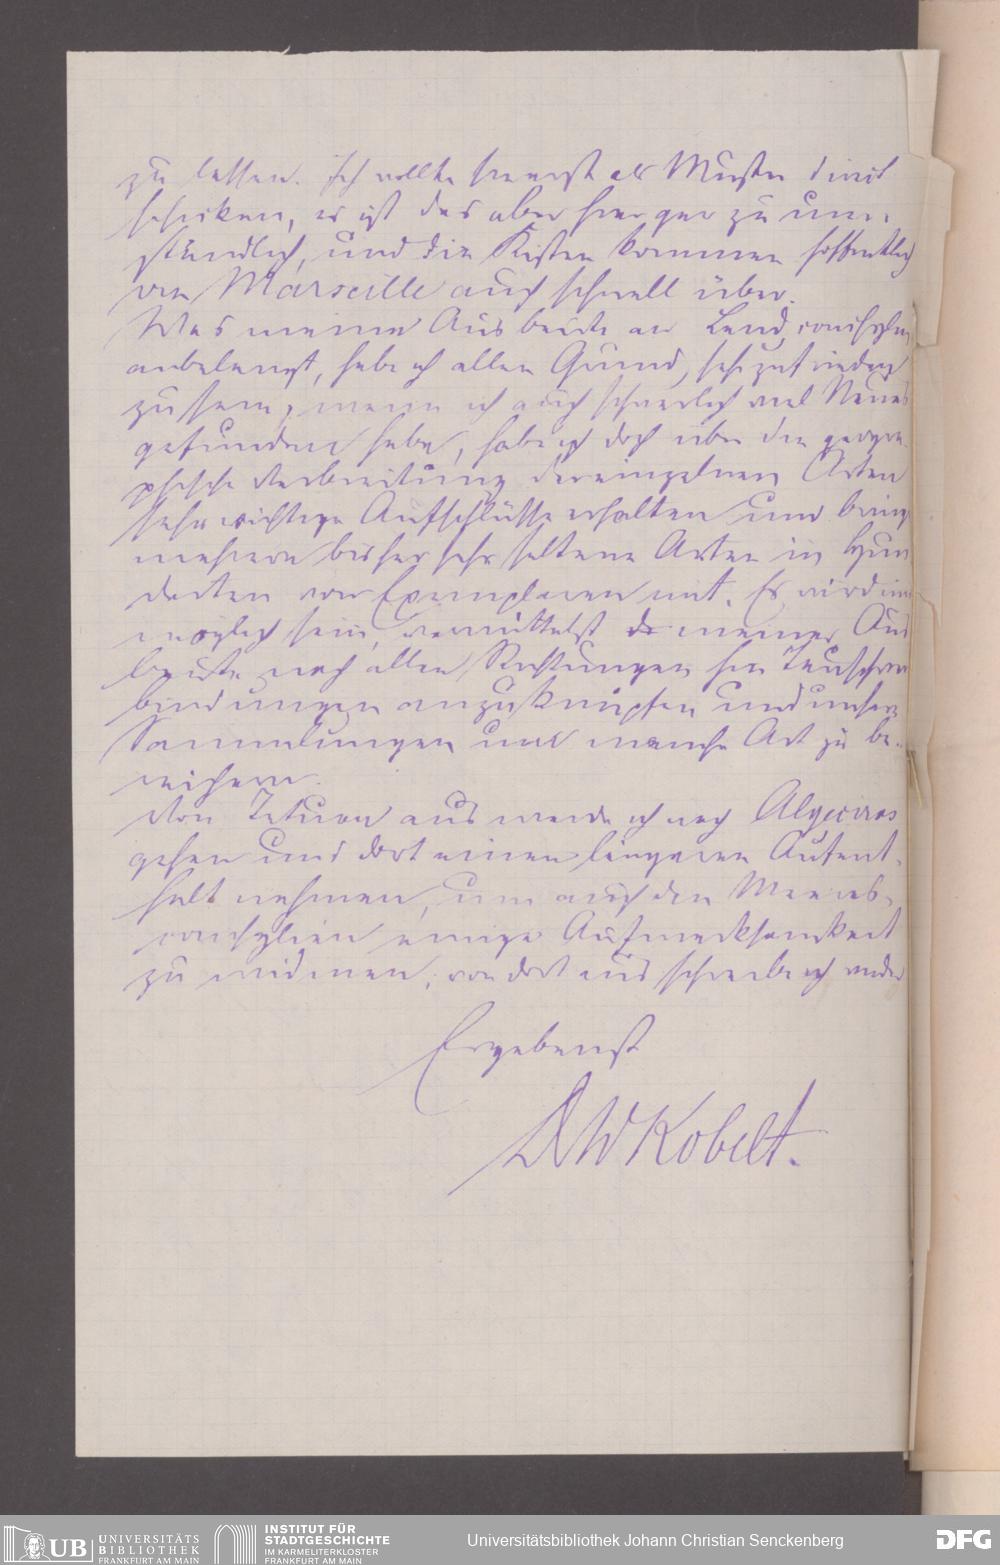 zu lassen. Ich wollte
schicken, es ist das aber hier gar zu um-
ständlich, und die Kisten kommen hoffentlich
von Marseille auch schnell über.
Was meine Ausbeute an Landconchylien
anbelangt, habe ich allen Grund, sehr zufrieden
zu sein; wenn ich auch schwerlich viel Neues
gefunden habe, habe ich doch über die geogra-
phische Verbreitung der einzelnen Arten
sehr wichtige Aufschlüsse erhalten und bringe
mehrere bisher sehr seltene Arten in Hun-
derten von Exemplaren mit. Es wird mir
möglich sein, vermittelst meiner Aus
beute nach allen Richtungen hin Tauschver
bindungen anzuknüpfen und unsere
Sammlungen um manche Art zu be-
reichern.
Von Tetuan aus werde ich nach Algeciras
gehen und dort einen längeren Aufent-
halt nehmen, um auch den Meeres-
conchylien einige Aufmerksamkeit
zu widmen; von dort aus schreibe ich wieder
Ergebenst
Dr W Kobelt.
UB UNIVERSITÄTS
BIBLIOTHEK
FRANKFURT AM MAIN
INSTITUT FÜR
STADTGESCHICHTE
IM KARMELITERKLOSTER
FRANKFURT AM MAIN
Universitätsbibliothek Johann Christian Senckenberg
DFG